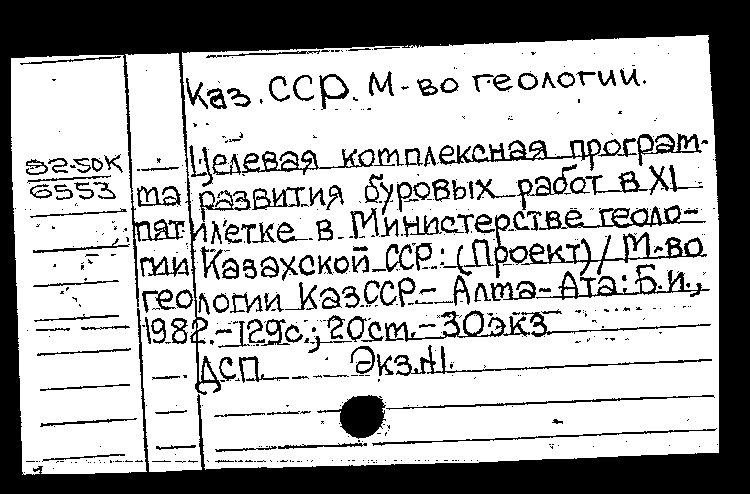 Каз. ССР. М-во геологии.
82-50к
6553
Целевая комплексная програм-
ма развития буровых работ в XI
пятилетке в Министерстве геоло-
гии Казахской ССР: (Проект) / М-во
геологии КазССР.- Алма-Ата: Б.и.,
1982.-129с.; 20см.-30экз
ДСП. Экз.№1.